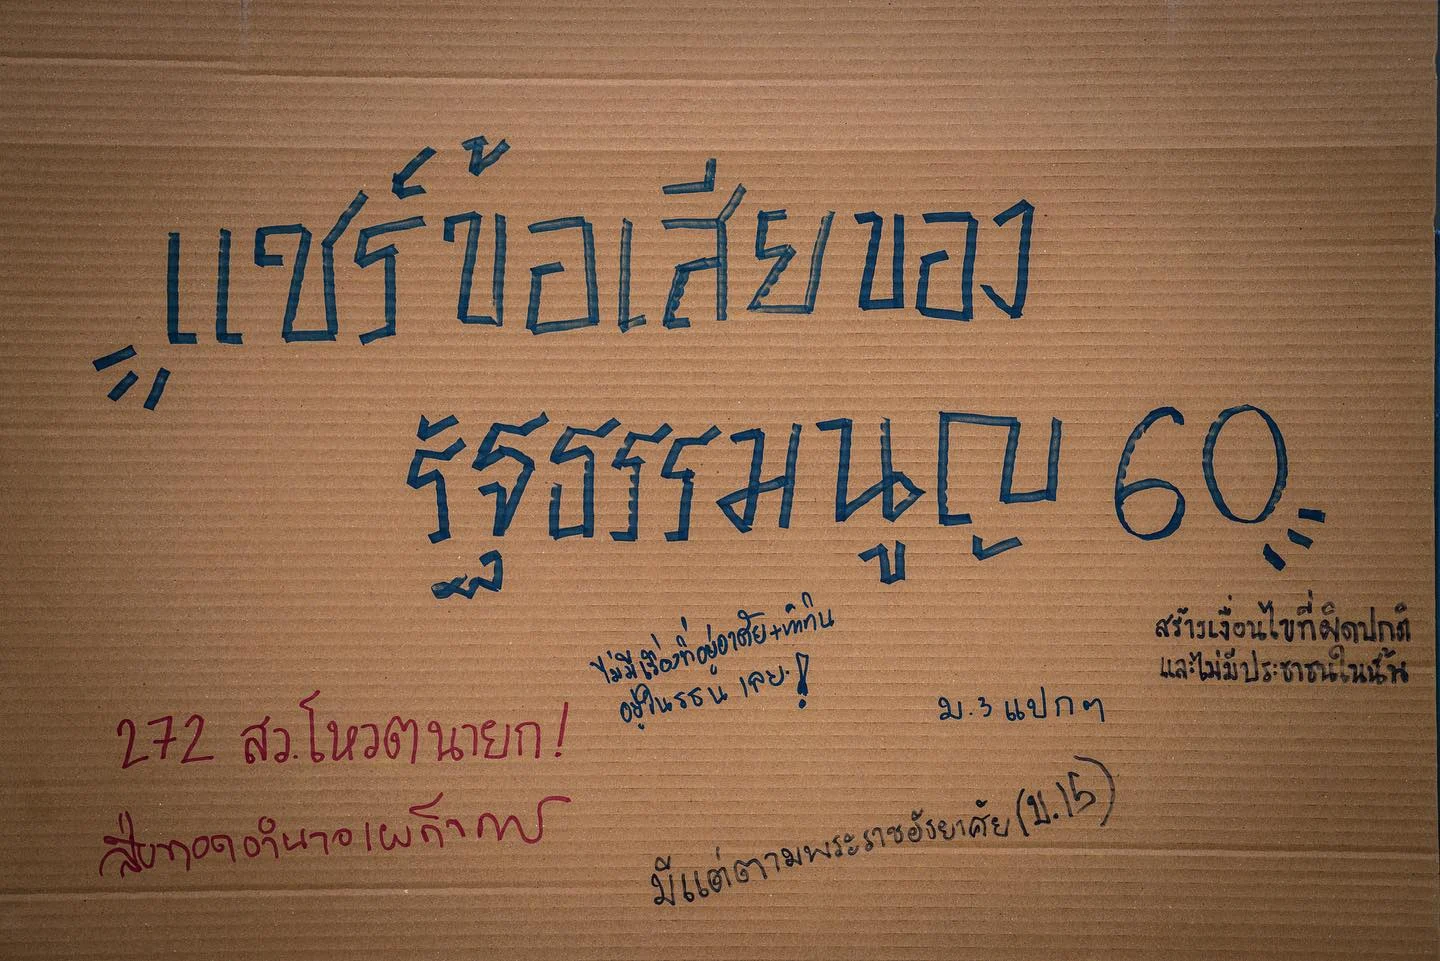 แชร์ข้อเสียของ
รัฐธรรมนูญ 60
ไม่มีเรื่องที่อยู่อาศัย+ที่ดิน
อยู่ใน รธน เลย!
สร้างเงื่อนไขที่ผิดปกติ
และไม่มีประชาชนในนั้น
272 สว.โหวตนายก!
สืบทอดอำนาจเผด็จการ
ม.3 แปกๆ
มีแต่ตามพระราชอัธยาศัย (ม.15)